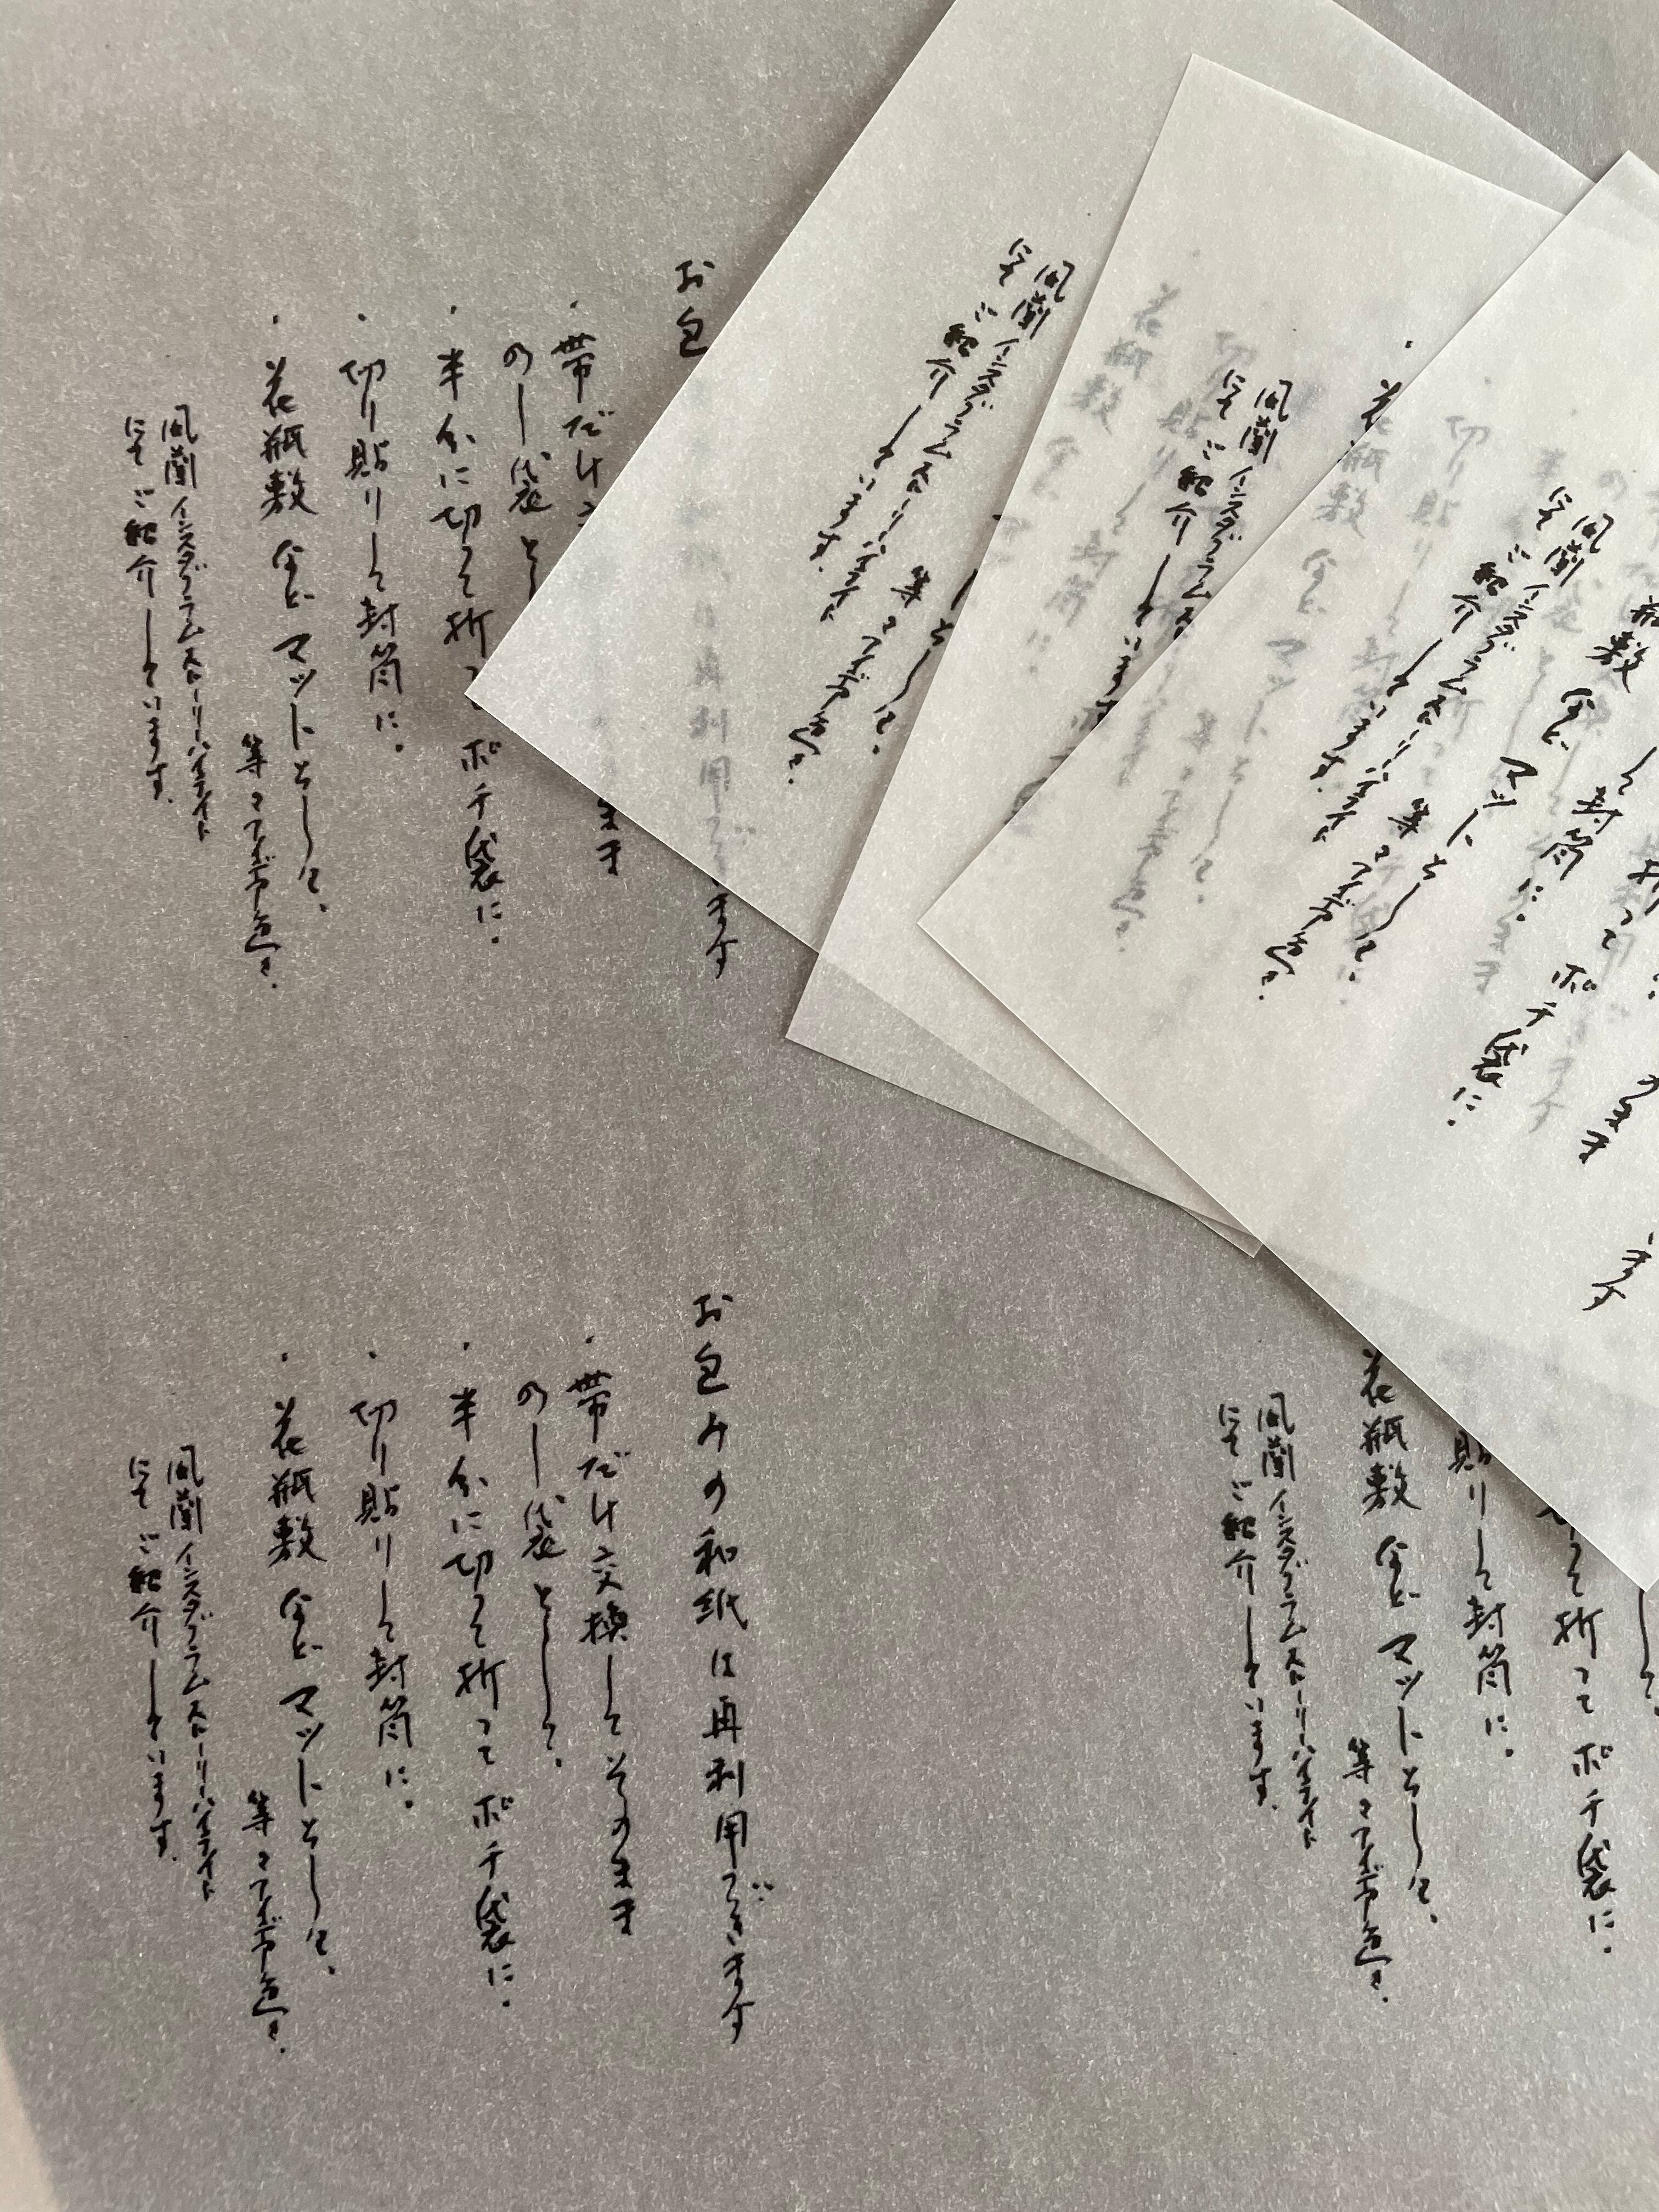 お包みの和紙は再利用できます
・帯だけ交換してそのまま
のし袋として。
・半分に切って折ってポチ袋に。
・切り貼りして封筒に。
・花瓶敷などマットとして。
等々アイデア色々。
風蘭インスタグラムストーリーハイライト
にてご紹介しています。
花瓶敷などマットとして。
等々アイデア色々。
風蘭インスタグラムストーリーハイライト
にてご紹介しています。
お包
ます
・帯だけ
まま
のし袋とし
・半分に切って折っ
ポチ袋に。
・切り貼りして封筒に。
・花瓶敷などマットとして。
等々アイデア色々。
風蘭インスタグラムストーリーハイライト
にてご紹介しています。
として。
等々アイデア色々。
風蘭インスタグラムストーリーハイライト
にてご紹介しています。
風蘭インスタグラムス
にてご紹介しています
ます
のまま
折ってポチ袋に。
て封筒に。
瓶敷などマットとして。
等々アイデア色々。
風蘭インスタグラムストーリーハイライト
にてご紹介しています。
貼りして封筒に。
って折ってポチ袋に。